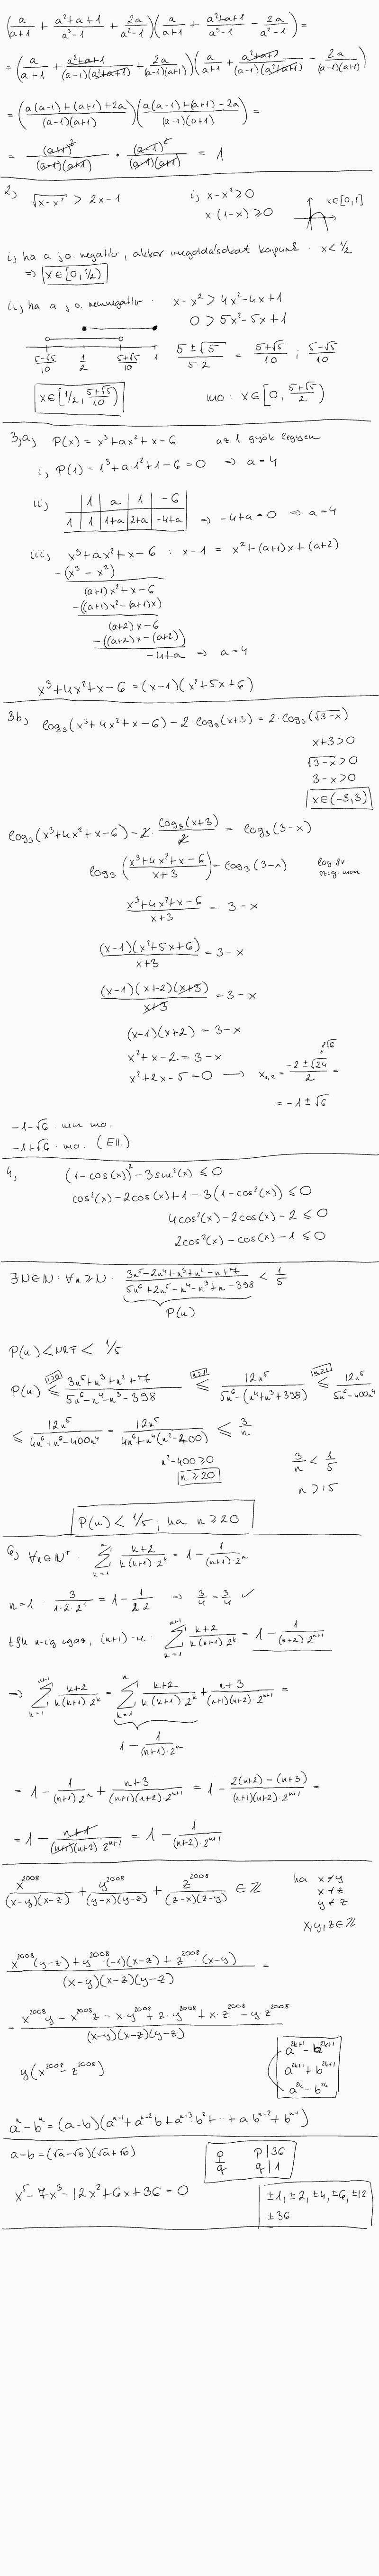 (a/(a+1) + (a²+a+1)/(a³-1) + 2a/(a²-1))(a/(a+1) + (a²+a+1)/(a³-1) - 2a/(a²-1)) =
= (a/(a+1) + (a²+a+1)/((a-1)(a²+a+1)) + 2a/((a-1)(a+1)))(a/(a+1) + (a²+a+1)/((a-1)(a²+a+1)) - 2a/((a-1)(a+1)))
= ((a(a-1)+(a+1)+2a)/((a-1)(a+1)))((a(a-1)+(a+1)-2a)/((a-1)(a+1))) =
= (a+1)²/((a-1)(a+1)) · (a-1)²/((a-1)(a+1)) = 1
2, √(x-x²) > 2x-1 i, x-x² ≥ 0 x∈[0,1]
x·(1-x) ≥ 0
i, ha a j.o. negatív, akkor megoldásokat kapunk. x < 1/2
⇒ x∈[0,1/2)
ii, ha a j.o. nemnegatív. x-x² > 4x²-4x+1
0 > 5x²-5x+1
(5-√5)/10 1/2 (5+√5)/10 1 (5±√5)/(5·2) = (5+√5)/10 ; (5-√5)/10
x∈[1/2, (5+√5)/10) mo. x∈[0, (5+√5)/2)
3,a, P(x) = x³+ax²+x-6 az 1 gyök legyen
i, P(1) = 1³+a·1²+1-6 = 0 ⇒ a=4
ii, 1 a 1 -6
1 1 1+a 2+a -4+a ⇒ -4+a=0 ⇒ a=4
iii, x³+ax²+x-6 : x-1 = x²+(a+1)x+(a+2)
-(x³-x²)
(a+1)x²+x-6
-((a+1)x²-(a+1)x)
(a+2)x-6
-((a+2)x-(a+2))
-4+a ⇒ a=4
x³+4x²+x-6 = (x-1)(x²+5x+6)
3b, log₃(x³+4x²+x-6) - 2·log₉(x+3) = 2·log₃(√(3-x))
x+3>0
√(3-x)>0
3-x>0
x∈(-3,3)
log₃(x³+4x²+x-6) - 2 log₃(x+3)/2 = log₃(3-x)
log₃((x³+4x²+x-6)/(x+3)) = log₃(3-x) log fv. szig. mon
(x³+4x²+x-6)/(x+3) = 3-x
(x-1)(x²+5x+6)/(x+3) = 3-x
(x-1)(x+2)(x+3)/(x+3) = 3-x
(x-1)(x+2) = 3-x
x²+x-2 = 3-x 2√6
x²+2x-5=0 → x₁,₂ = (-2±√24)/2 =
= -1±√6
-1-√6 nem mo.
-1+√6 mo. (Ell.)
4, (1-cos(x))²-3sin²(x) ≤ 0
cos²(x)-2cos(x)+1-3(1-cos²(x)) ≤ 0
4cos²(x)-2cos(x)-2 ≤ 0
2cos²(x)-cos(x)-1 ≤ 0
∃N∈ℕ ∀n≥N. (3n⁵-2n⁴+n³+n²-n+7)/(5n⁶+2n⁵-n⁴-n³+n-398) < 1/5
P(n)
P(n) < NRF < 1/5
P(n) ≤ (3n⁵+n³+n²+7)/(5n⁶-n⁴-n³-398) ≤ 12n⁵/(5n⁶-(n⁴+n³+398)) ≤ 12n⁵/(5n⁶-400n⁴)
≤ 12n⁵/(4n⁶+n⁶-400n⁴) = 12n⁵/(4n⁶+n⁴(n²-400)) ≤ 3/n
n²-400≥0 3/n < 1/5
n≥20 n>15
P(n) < 1/5, ha n≥20
6, ∀n∈ℕ⁺. Σ_{k=1}^{n} (k+2)/(k(k+1)·2^k) = 1 - 1/((n+1)·2^n)
n=1. 3/(1·2·2¹) = 1 - 1/(2·2) ⇒ 3/4 = 3/4 ✓
tfh n-ig igaz, (n+1)-re. Σ_{k=1}^{n+1} (k+2)/(k(k+1)·2^k) = 1 - 1/((n+2)·2^{n+1})
⇒ Σ_{k=1}^{n+1} (k+2)/(k(k+1)·2^k) = Σ_{k=1}^{n} (k+2)/(k(k+1)·2^k) + (n+3)/((n+1)(n+2)·2^{n+1}) =
1 - 1/((n+1)·2^n)
= 1 - 1/((n+1)·2^n) + (n+3)/((n+1)(n+2)·2^{n+1}) = 1 - (2(n+2)-(n+3))/((n+1)(n+2)·2^{n+1}) =
= 1 - (n+1)/((n+1)(n+2)·2^{n+1}) = 1 - 1/((n+2)·2^{n+1})
x²⁰⁰⁸/((x-y)(x-z)) + y²⁰⁰⁸/((y-x)(y-z)) + z²⁰⁰⁸/((z-x)(z-y)) ∈ ℤ ha x≠y
x≠z
y≠z
x,y,z∈ℤ
(x²⁰⁰⁸(y-z)+y²⁰⁰⁸·(-1)(x-z)+z²⁰⁰⁸·(x-y))/((x-y)(x-z)(y-z)) =
= (x²⁰⁰⁸·y - x²⁰⁰⁸z - x·y²⁰⁰⁸ + z·y²⁰⁰⁸ + x·z²⁰⁰⁸ - y·z²⁰⁰⁸)/((x-y)(x-z)(y-z))
y(x²⁰⁰⁸-z²⁰⁰⁸)
a^{2k+1} - b^{2k+1}
a^{2k+1} + b^{2k+1}
a^{2k} - b^{2k}
aⁿ-bⁿ = (a-b)(a^{n-1}+a^{n-2}b+a^{n-3}b²+..+a·b^{n-2}+b^{n-1})
a-b = (√a-√b)(√a+√b) p/q p|36 q|1
x⁵-7x³-12x²+6x+36=0 ±1, ±2, ±4, ±6, ±12
±36